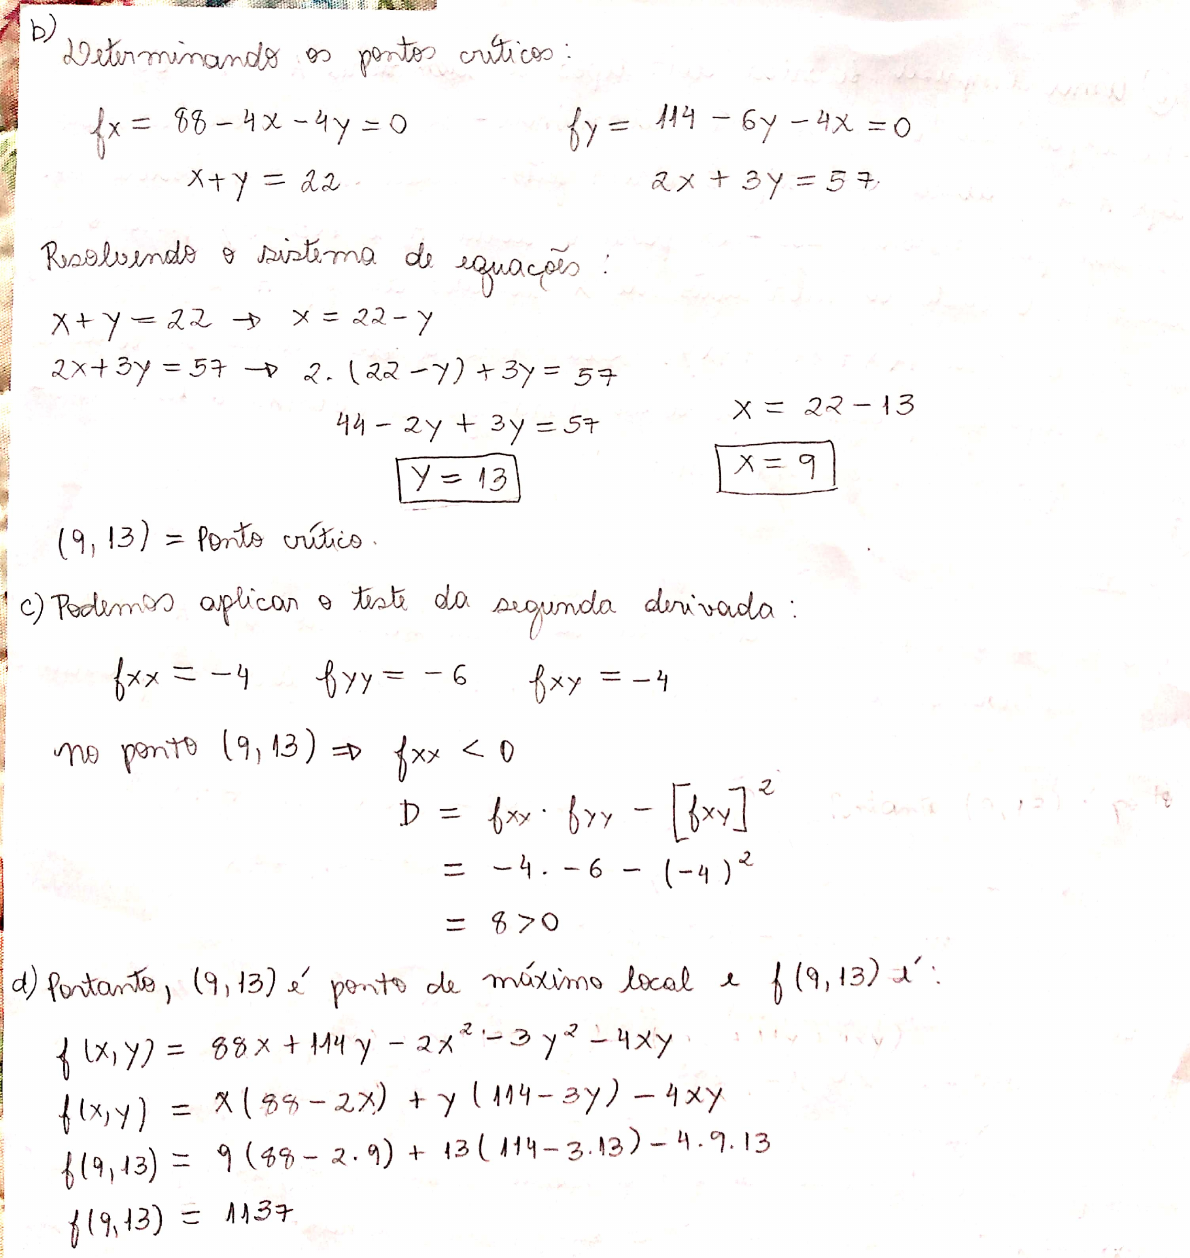 b)
Determinando os pontos críticos:
fx = 88 - 4x - 4y = 0     fy = 114 - 6y - 4x = 0
x + y = 22     2x + 3y = 57.
Resolvendo o sistema de equações:
x + y = 22 → x = 22 - y
2x + 3y = 57 → 2. (22 - y) + 3y = 57
x = 22 - 13
44 - 2y + 3y = 57
y = 13     x = 9
(9, 13) = Ponto crítico.
c) Podemos aplicar o teste da segunda derivada:
fxx = -4     fyy = -6     fxy = -4
no ponto (9, 13) ⇒ fxx < 0
D = fxx · fyy - [fxy]²
= -4. -6 - (-4)²
= 8 > 0
d) Portanto, (9, 13) é ponto de máximo local e f(9, 13) é:
f(x, y) = 88x + 114y - 2x² - 3y² - 4xy
f(x, y) = x(88 - 2x) + y(114 - 3y) - 4xy
f(9, 13) = 9(88 - 2.9) + 13(114 - 3.13) - 4.9.13
f(9, 13) = 1137